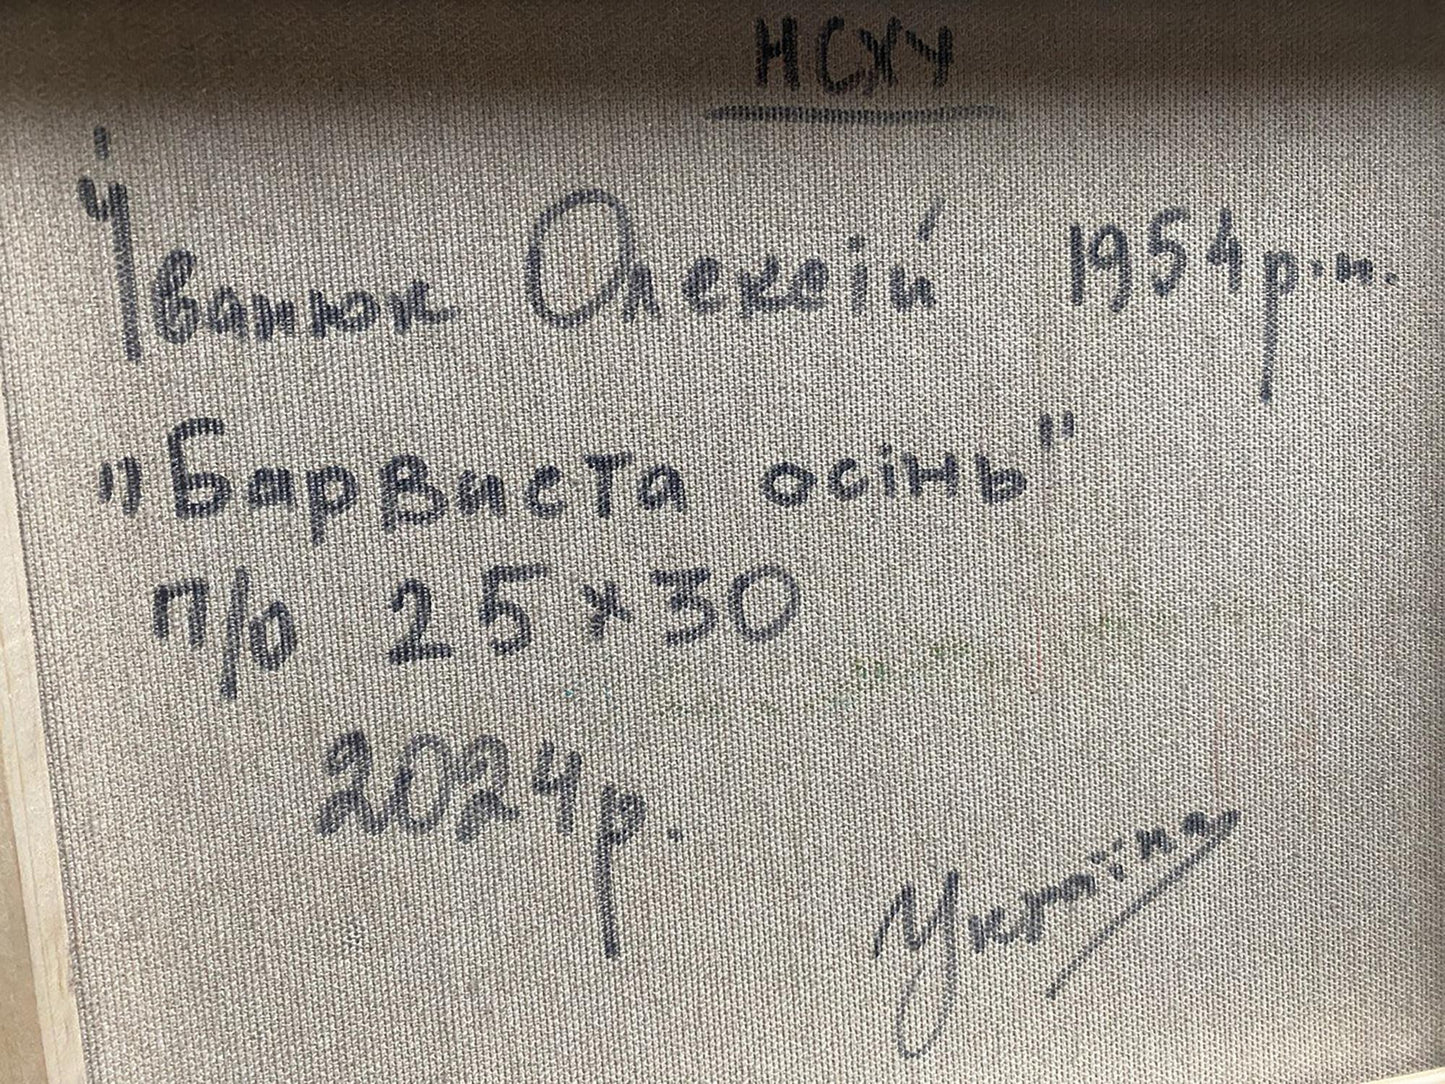 НСХУ
Іванюк Олексій 1954 р.н.
"Барвиста осінь"
п/о 25x30
2024р.
Україна